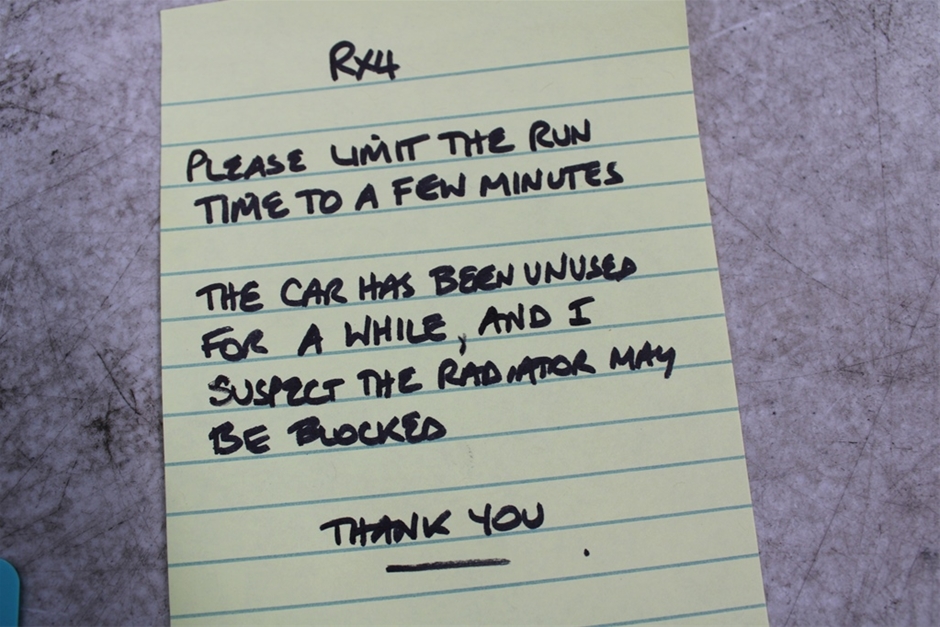 RX4
PLEASE LIMIT THE RUN
TIME TO A FEW MINUTES
THE CAR HAS BEEN UNUSED
FOR A WHILE, AND I
SUSPECT THE RADIATOR MAY
BE BLOCKED
THANK YOU